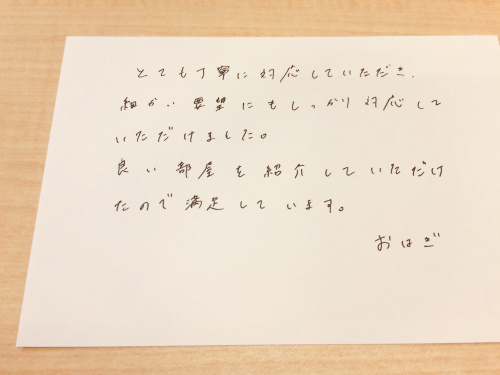 とても丁寧に対応していただき、
細かい要望にもしっかり対応して
いただけました。
良い部屋を紹介していただけ
たので満足しています。
おはぎ